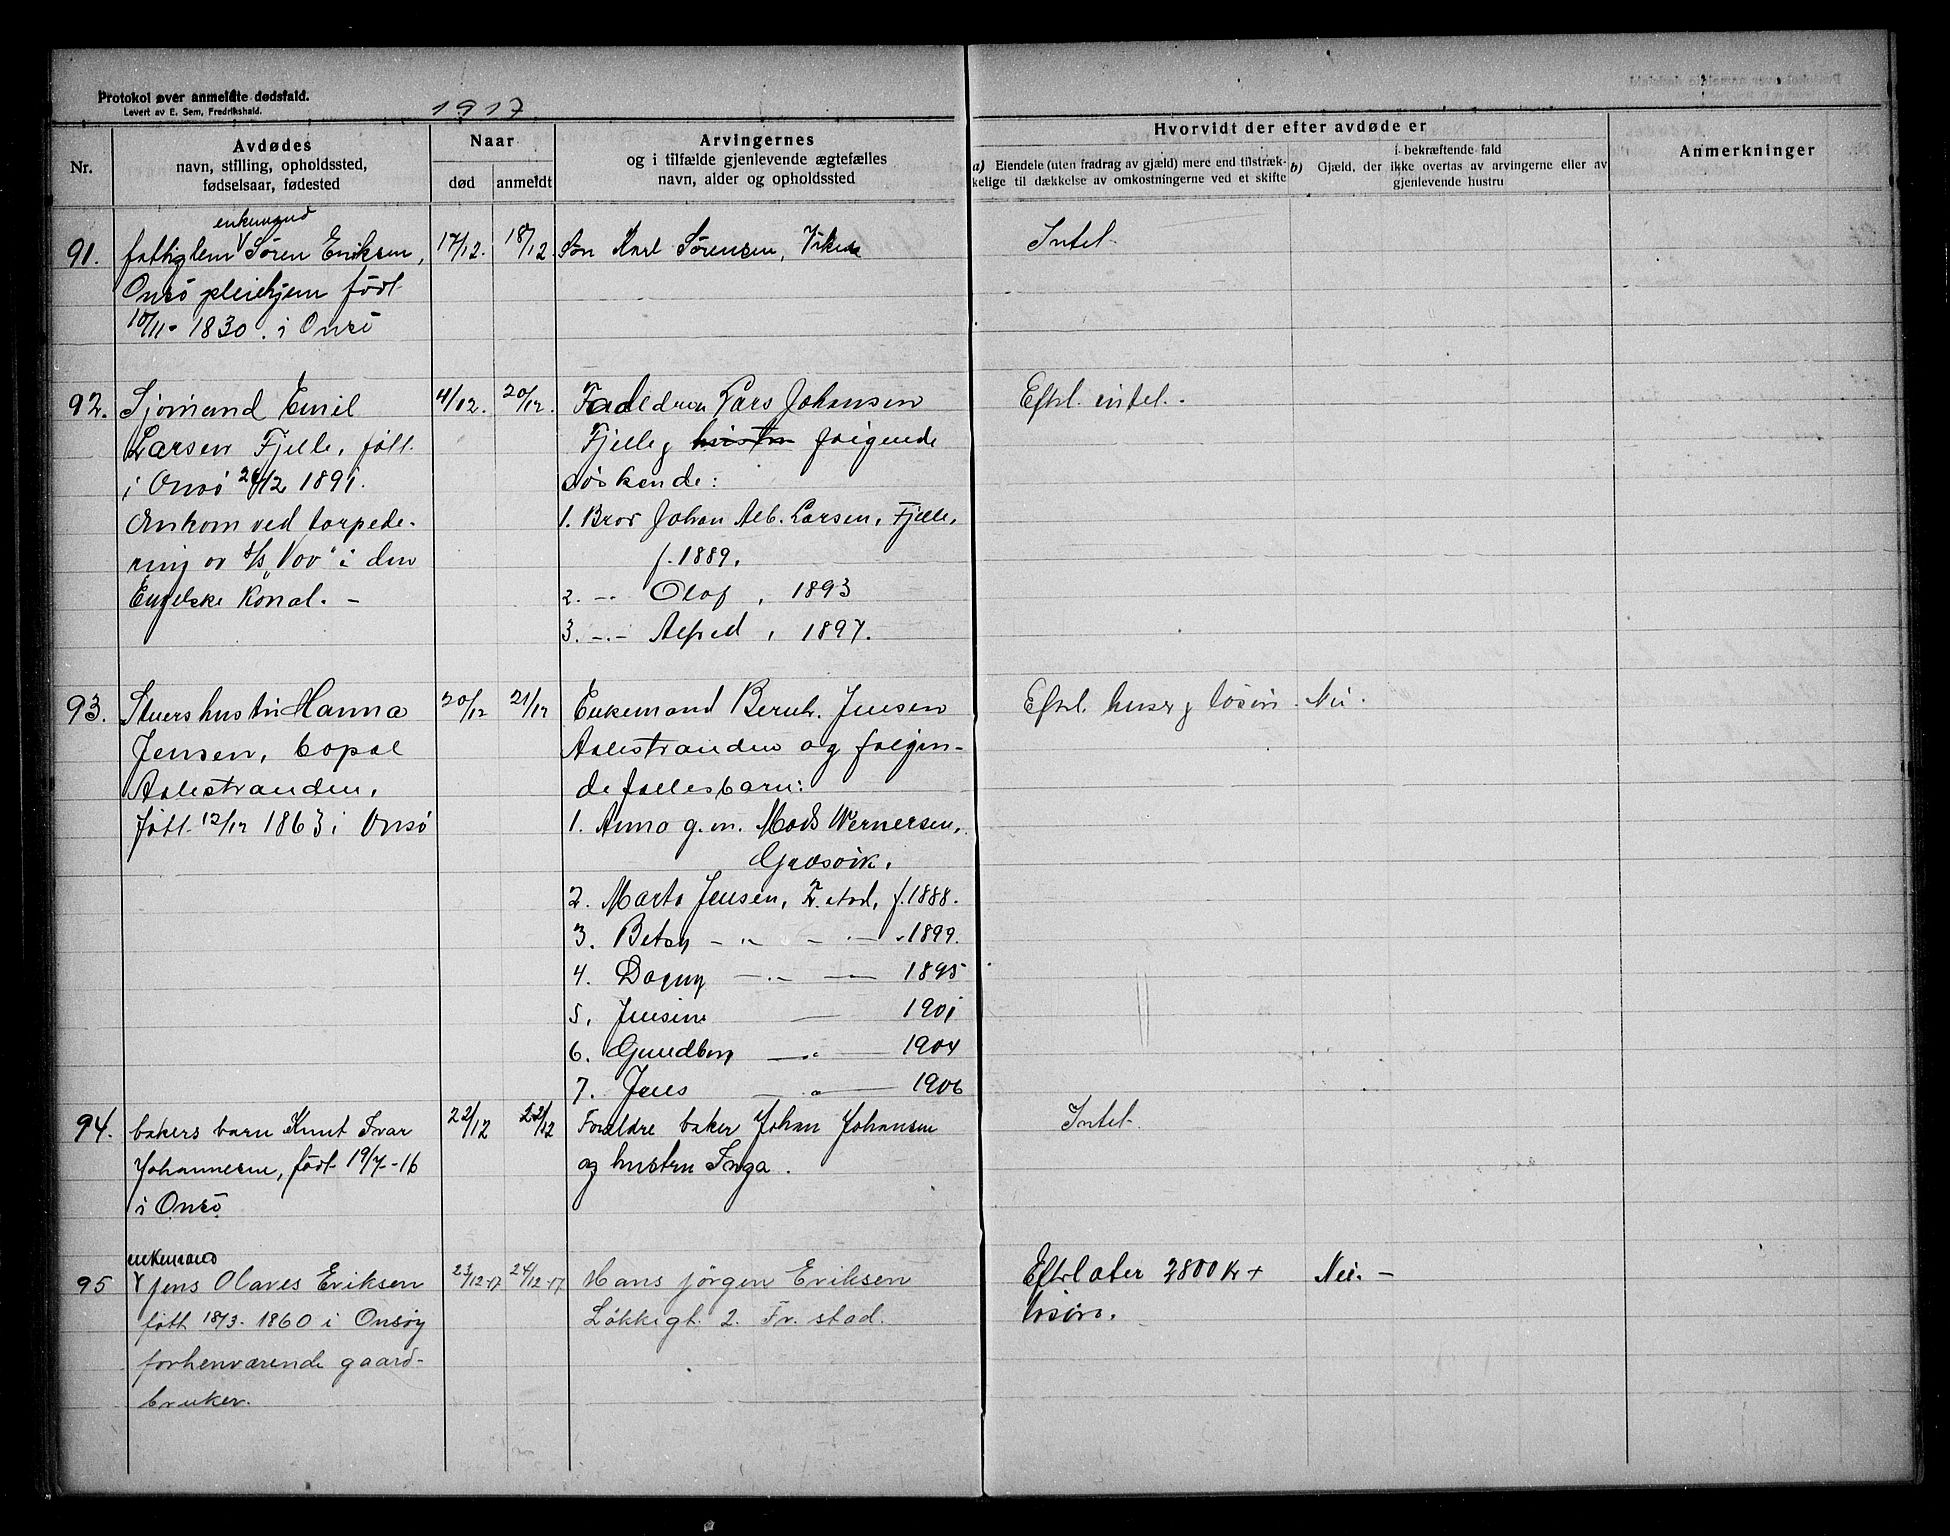 Protokol over anmeldte dødsfald.
Levert av E. Sem, Fredrikshald.
1917
Nr.
Avdødes
navn, stilling, opholdssted,
fødselsaar, fødested
Naar
død
anmeldt
Arvingernes
og i tilfælde gjenlevende ægtefælles
navn, alder og opholdssted
Hvorvidt der efter avdøde er
a) Eiendele (uten fradrag av gjæld) mere end tilstræk-
kelige til dækkelse av omkostningerne ved et skifte
i bekræftende fald
b) Gjæld, der ikke overtas av arvingerne eller av
gjenlevende hustru
Anmerkninger
91.
enkemand
fattiglem Søren Eriksen,
Onsö pleiehjem født
10/11- 1830. i Onsö
17/12.
18/12
Søn Karl Sørensen, Viken
Intet.
92.
Sjømand Emil
Larsen Fjelle, født.
i Onsö 24/12 1891.
Omkom ved torpede-
ring av s/s "Vov" i den
Engelske Kanal. -
4/12.
20/12.
Faderen Lars Johansen
Fjelle og hustru følgende
søskende:
1. Bror Johan Alb. Larsen, Fjelle,
f. 1889.
2. -- Olaf, 1893
3. -.- Alfred, 1897.
Efterl. intet.
93.
Stuershustru Hanna
Jensen, Copal
Aalestranden,
født. 12/12 1863 i Onsö
20/12
21/12
Enkemand Bernh. Jensen
Aalestranden og følgen-
de fællesbarn:
1. Anna g. m. Mads Wernersen,
Græsvik.
2. Marta Jensen, F. stad, f. 1888.
3. Betsy - .. - .- - 1899.
4. Dagny -..- -- 1895
5. Jensine - 1901
6. Gundborg -.- 1904
7. Jens - 1906
Efterl. huser og løsøre.
Nei.
94.
bakers barn Knut Ivar
Johannesen, født 19/7-16
i Onsö
22/12
22/12
Foreldre baker Johan Johansen
og hustru Inga.
Intet.
95
enkemand
Jens Olaves Eriksen
født 18/3- 1860 i Onsøy
forhenværende gaard-
bruker.
23/12-17
24/12-17
Hans Jörgen Eriksen
Løkkegt. 2. Fr. stad.
Efterlater 2800 Kr +
løsøre.
Nei. -